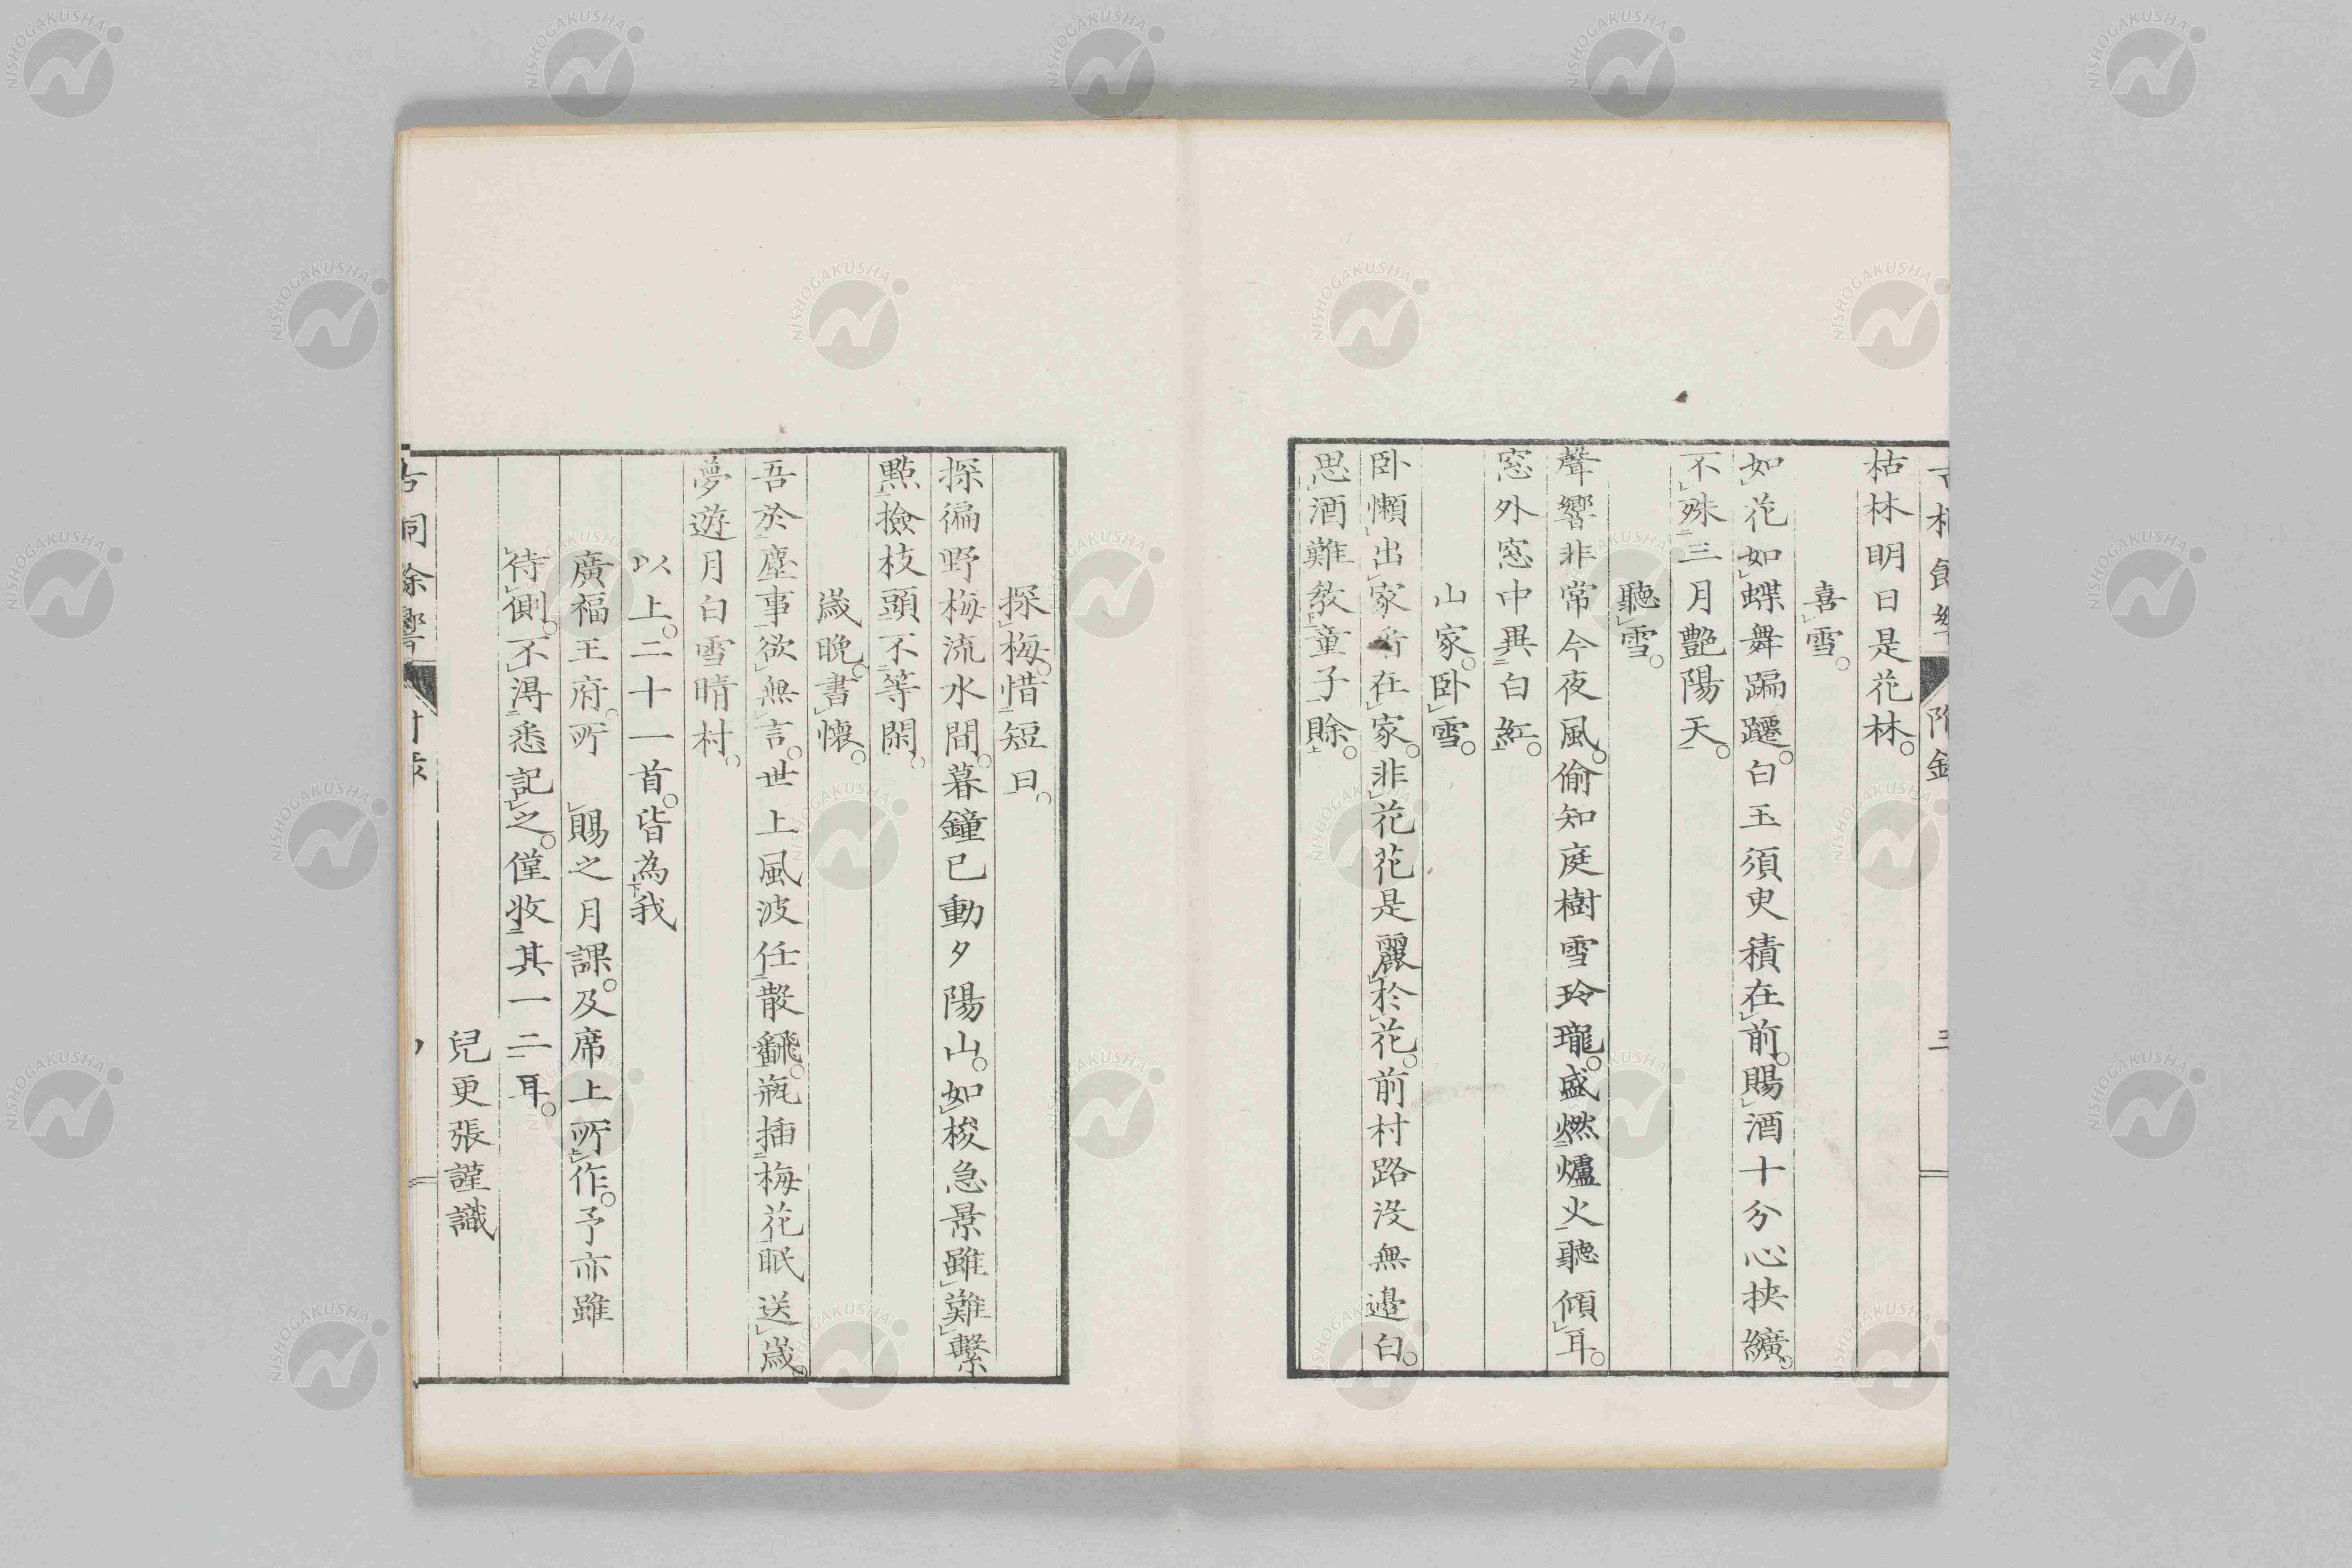 枯林明日是花林。
喜雪。
如花如蝶舞蹁躚。白玉須臾積在前。賜酒十分心挟纊。
不殊三月艶陽天。
聽雪。
聲響非常今夜風。偷知庭樹雪玲瓏。盛燃爐火聽傾耳。
窓外窓中異白紅。
山家。臥雪。
臥懶出家在家。非花花是麗於花。前村路没無邉白。
思酒難教童子賖。
探梅。惜短日。
探徧野梅流水間。暮鐘已動夕陽山。如梭急景雖難繫
點撿枝頭不等閑。
歳晩。書懷。
吾於塵事欲無言。世上風波任散飜。瓶插梅花眠送歳。
夢遊月白雪晴村。
以上。二十一首。皆為我
廣福王府。所 賜之月課。及席上所作。予亦雖
待側。不淂悉記之。僅收其一二耳。
兒更張謹識
古桐餘響
NISHOGAKUSHA